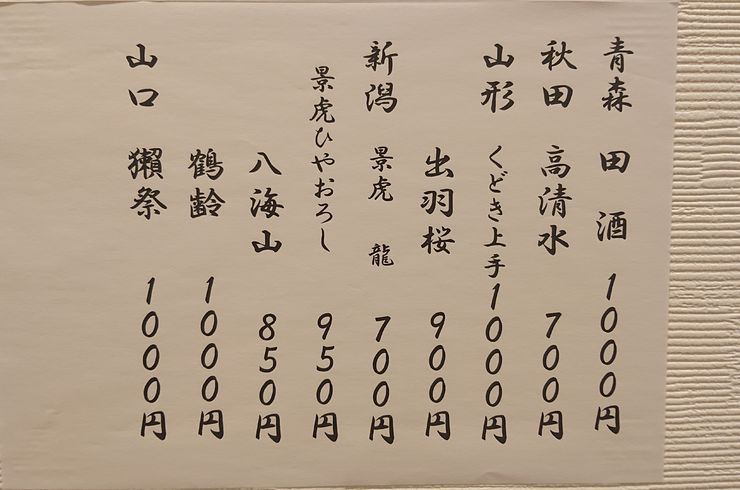 青森 田酒 1000円
秋田 高清水 700円
山形 くどき上手 1000円
出羽桜 900円
新潟 景虎 龍 700円
景虎ひやおろし 950円
八海山 850円
鶴齢 1000円
山口 獺祭 1000円